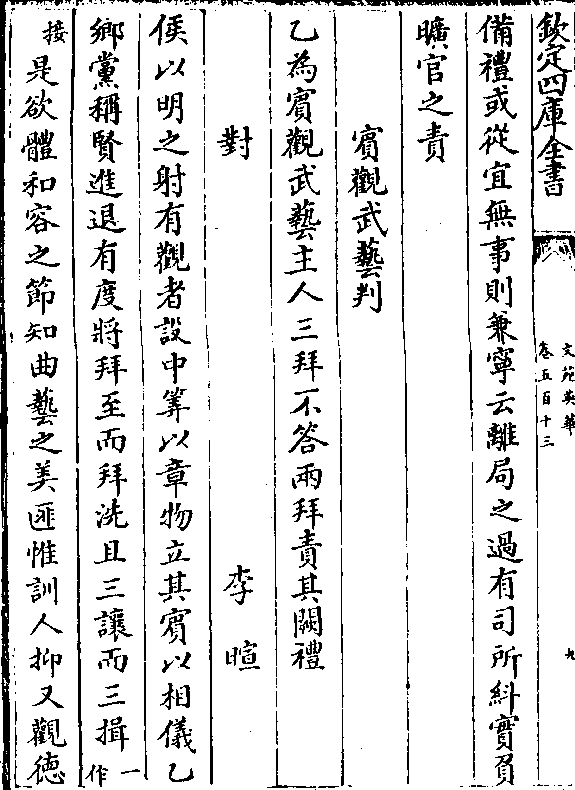 欽定四庫全書
文苑英華
卷五百十三
九
備禮或從宜無事則兼寧云離局之過有司所糾實負
曠官之責
賓觀武藝判
乙為賓觀武藝主人三拜不答兩拜責其闕禮
對 李暄
侯以明之射有觀者設中筭以章物立其賓以相儀乙
鄉黨稱賢進退有度將拜至而拜洗且三讓而三揖一作
接是欲體和容之節知曲藝之美匪惟訓人抑又觀德